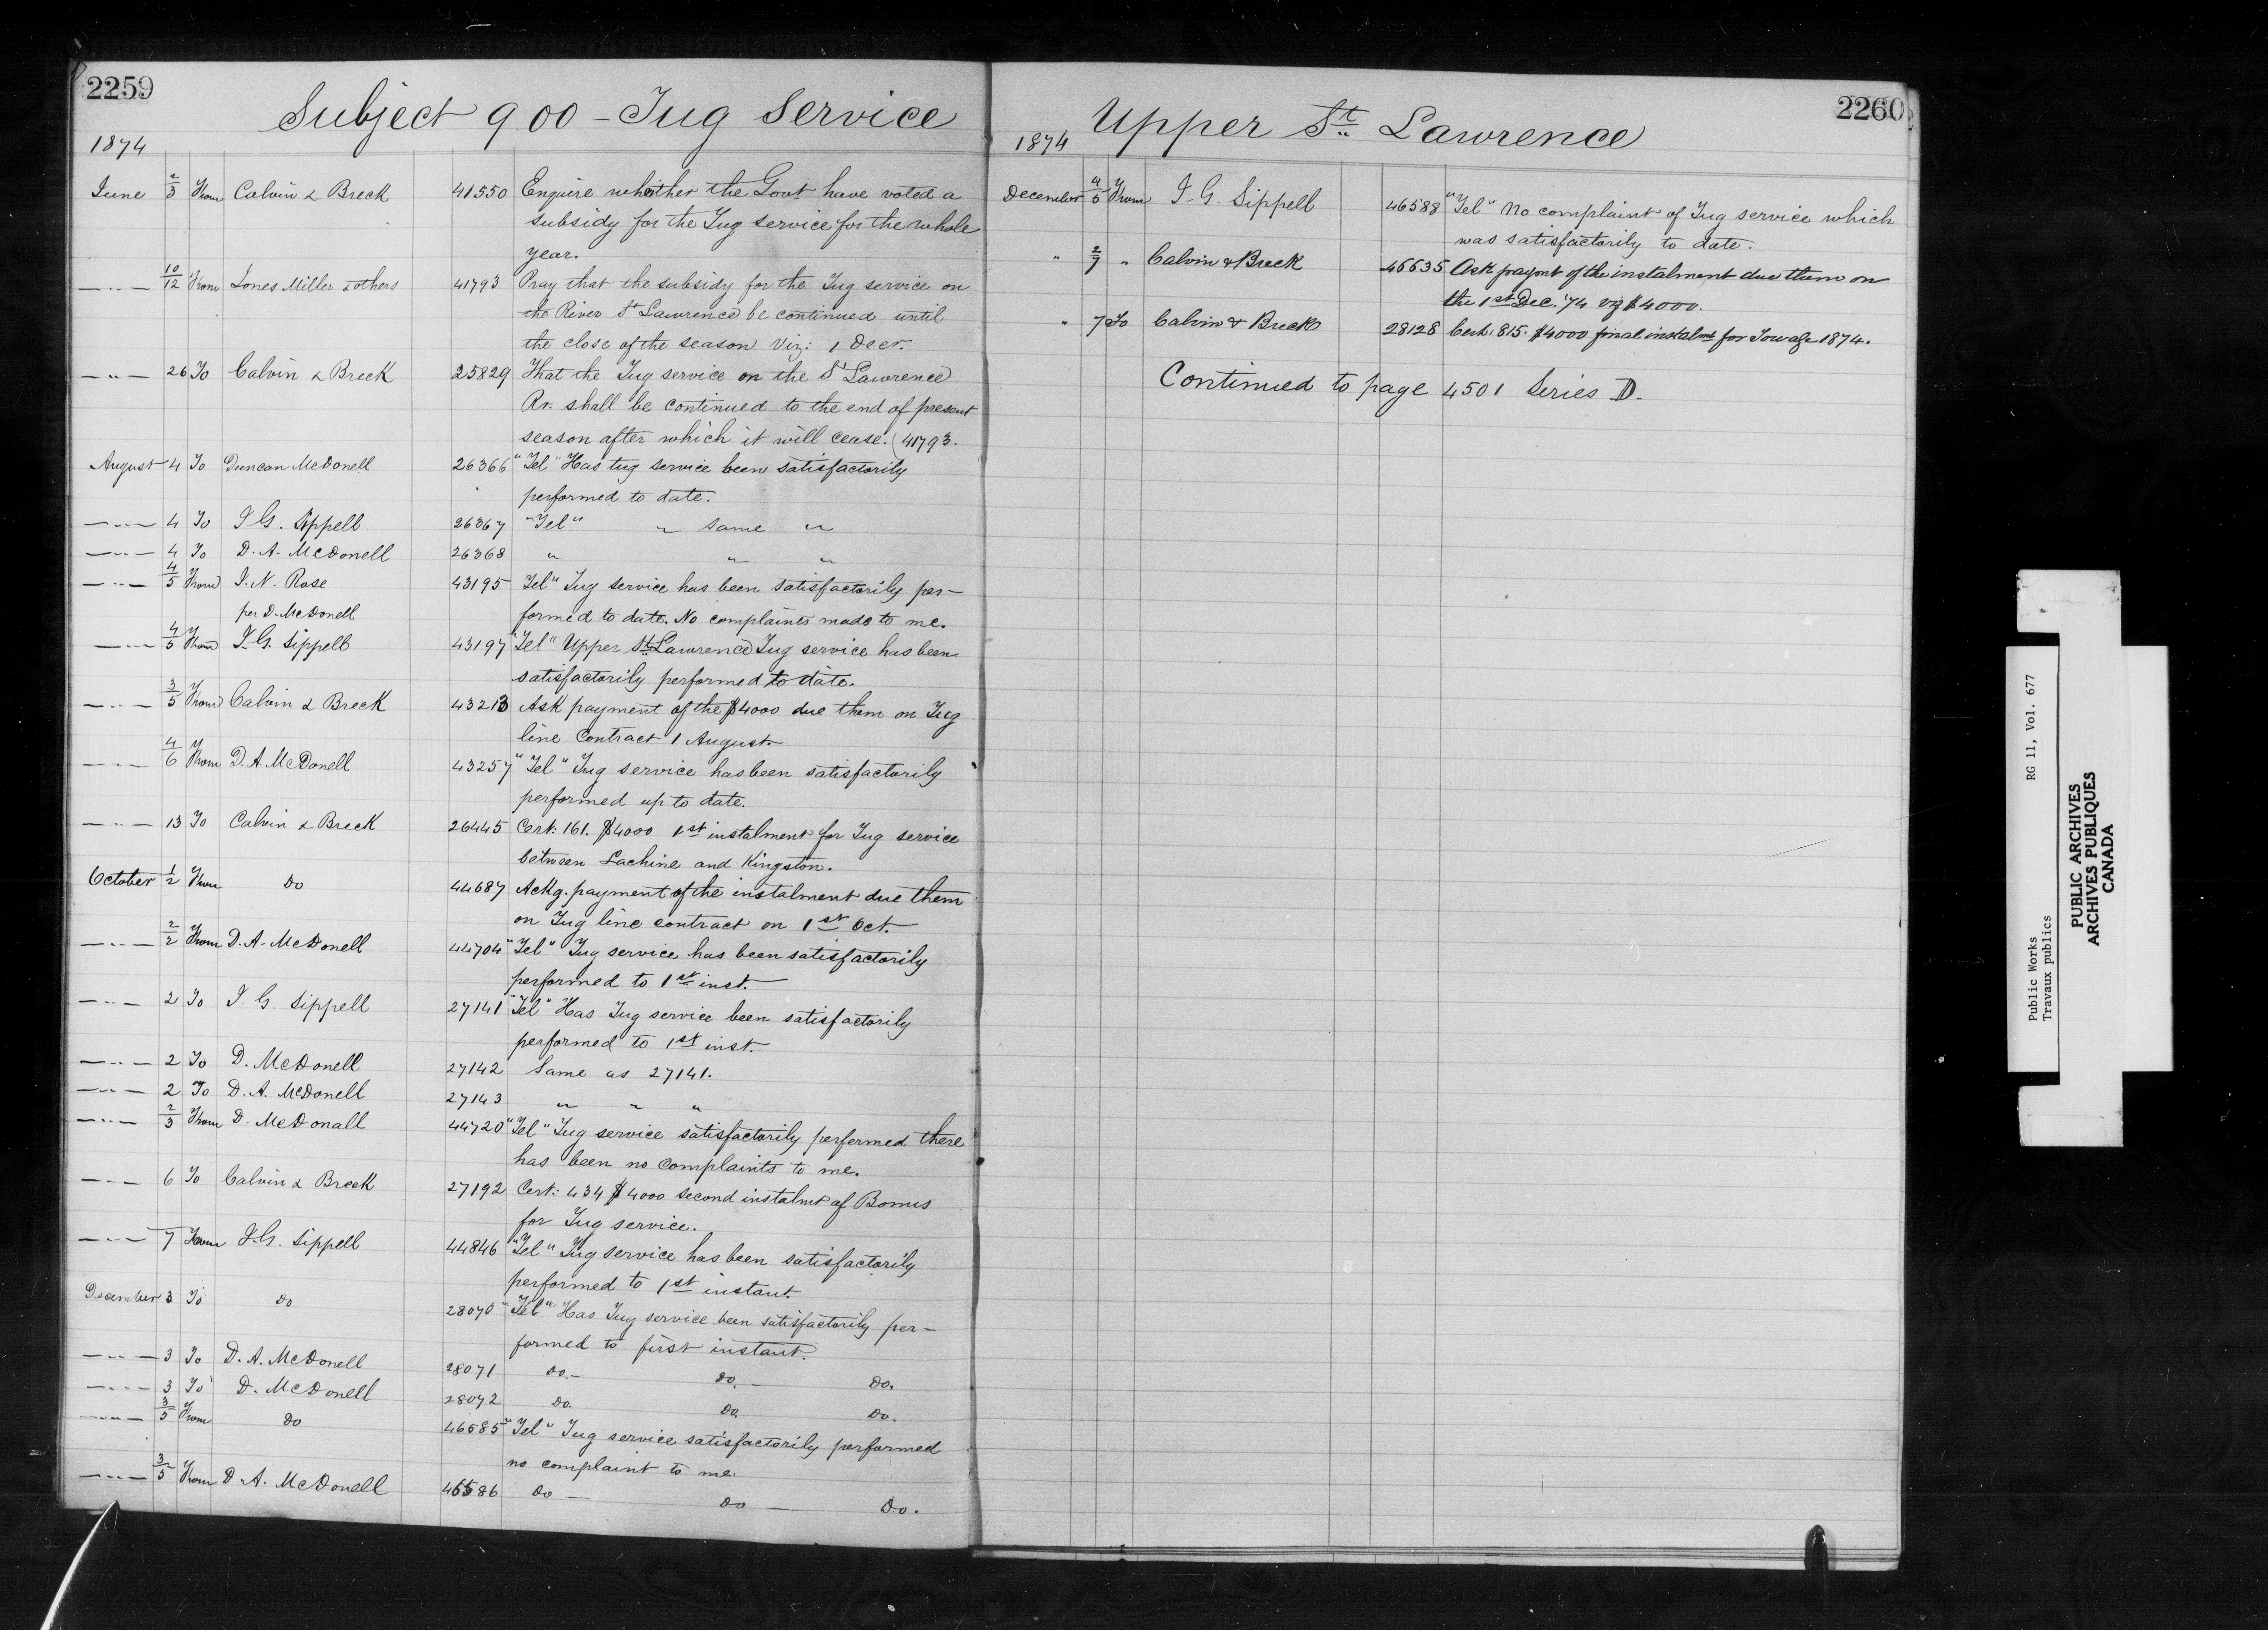 2259
Subject 900 - Tug Service
1874
June 2/3 From Calvin & Breck 41550 Enquire whether the Govt have voted a
subsidy for the Tug service for the whole
year.
—"— 10/12 From Jones Miller & others 41793 Pray that the subsidy for the Tug service on
the River St Lawrence be continued until
the close of the season viz: 1 Decr.
—"— 26 To Calvin & Breck 25829 That the Tug service on the St Lawrence
Rr. shall be continued to the end of present
season after which it will cease. (41793.
August 4 To Duncan McDonell 26366 "Tel" Has tug service been satisfactorily
performed to date.
—"— 4 To J G. Sippell 26367 "Tel" " same "
—"— 4 To D. A. McDonell 26368 " " "
—"— 4/5 From J. N. Rose 43195 Tel" Tug service has been satisfactorily per-
per D. McDonell formed to date. No complaints made to me.
—"— 4/5 From J. G. Sippell 43197 "Tel" Upper St. Lawrence Tug service has been
satisfactorily performed to date.
—"— 3/5 From Calvin & Breck 43213 Ask payment of the $4000 due them on Tug
line Contract 1 August.
—"— 4/6 From D. A. McDonell 43257 "Tel" Tug service has been satisfactorily
performed up to date.
—"— 13 To Calvin & Breck 26445 Cert: 161. $4000 1st instalment for Tug service
between Lachine and Kingston.
October 1/2 From Do 44687 Ackg. payment of the instalment due them
on Tug line contract on 1st Oct.
—"— 2/2 From D. A. McDonell 44704 "Tel" Tug service has been satisfactorily
performed to 1st inst.
—"— 2 To J. G. Sippell 27141 "Tel" Has Tug service been satisfactorily
performed to 1st inst.
—"— 2 To D. McDonell 27142 Same as 27141.
—"— 2 To D. A. McDonell 27143 " " "
—"— 2/3 From D. McDonall 44720 "Tel" Tug service satisfactorily performed there
has been no complaints to me.
—"— 6 To Calvin & Breck 27192 Cert: 434 $4000 second instalmt of Bonus
for Tug service.
—"— 7 From J. G. Sippell 44846 "Tel" Tug service has been satisfactorily
performed to 1st instant.
December 3 To Do 28070 "Tel" Has Tug service been satisfactorily per-
formed to first instant.
—"— 3 To D. A. McDonell 28071 Do. — Do. — Do.
—"— 3 To D. McDonell 28072 Do. Do. Do.
—"— 3/5 From Do 46585 "Tel" Tug service satisfactorily performed
no complaint to me.
—"— 3/5 From D. A. McDonell 46586 Do — Do — Do.
2260
Upper St. Lawrence
1874
December 4/5 From J. G. Sippell 46588 "Tel" No complaint of Tug service which
was satisfactorily to date.
" 2/7 " Calvin & Breck 46635 Ask paymt of the instalment due them on
the 1st Dec. '74 viz $4000.
" 7 To Calvin & Breck 28128 Cert: 815. $4000 final instalmt for Towage 1874.
Continued to page 4501 Series D.
Public Works RG 11, Vol. 677
Travaux publics
PUBLIC ARCHIVES
ARCHIVES PUBLIQUES
CANADA